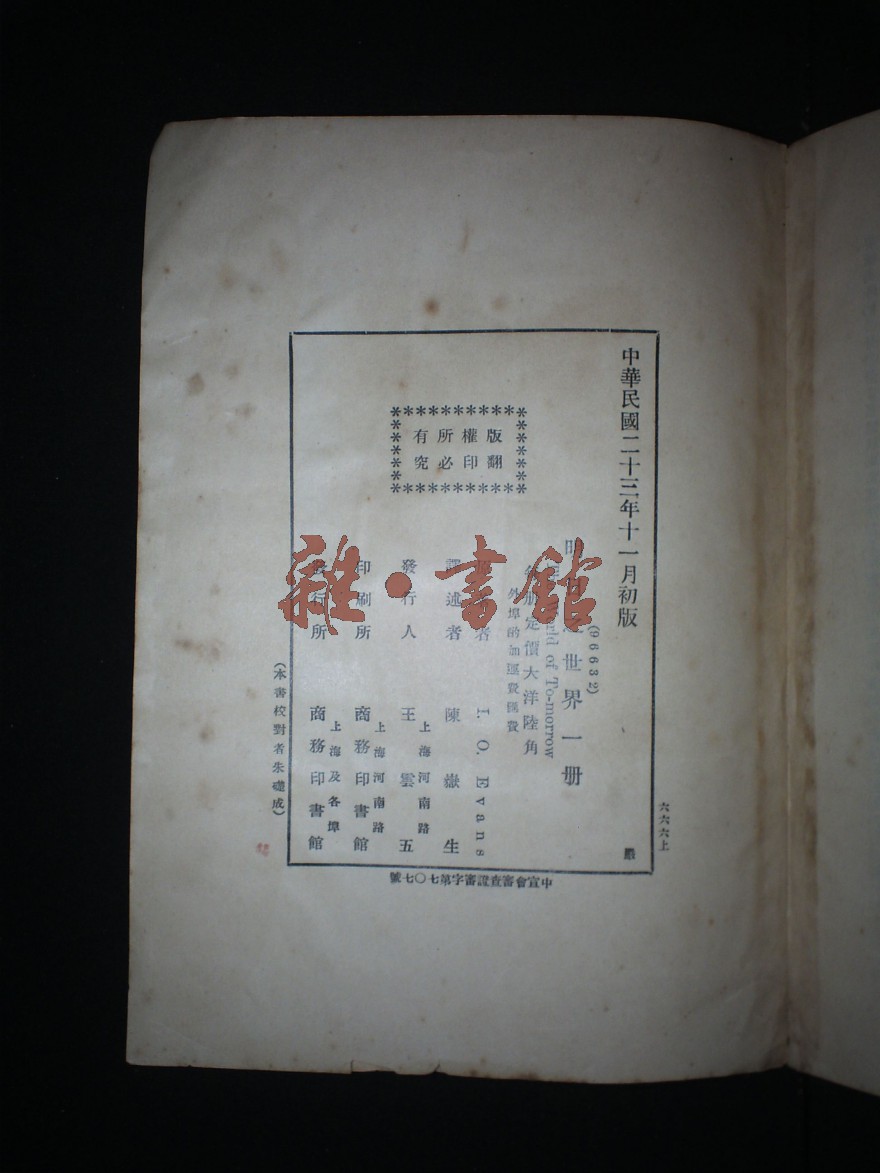 中華民國二十三年十一月初版
(96632)
世界一册
of To-morrow
每册定價大洋陸角
外埠酌加運費匯費
者 I. O. Evans
譯述者 陳嶽生
發行人 王雲五
上海河南路
印刷所 商務印書館
上海河南路
發行所 商務印書館
上海及各埠
版權所有
翻印必究
(本書校對者朱 成)
六六六上
中宣會審查證審字第七〇七號
雜·書館